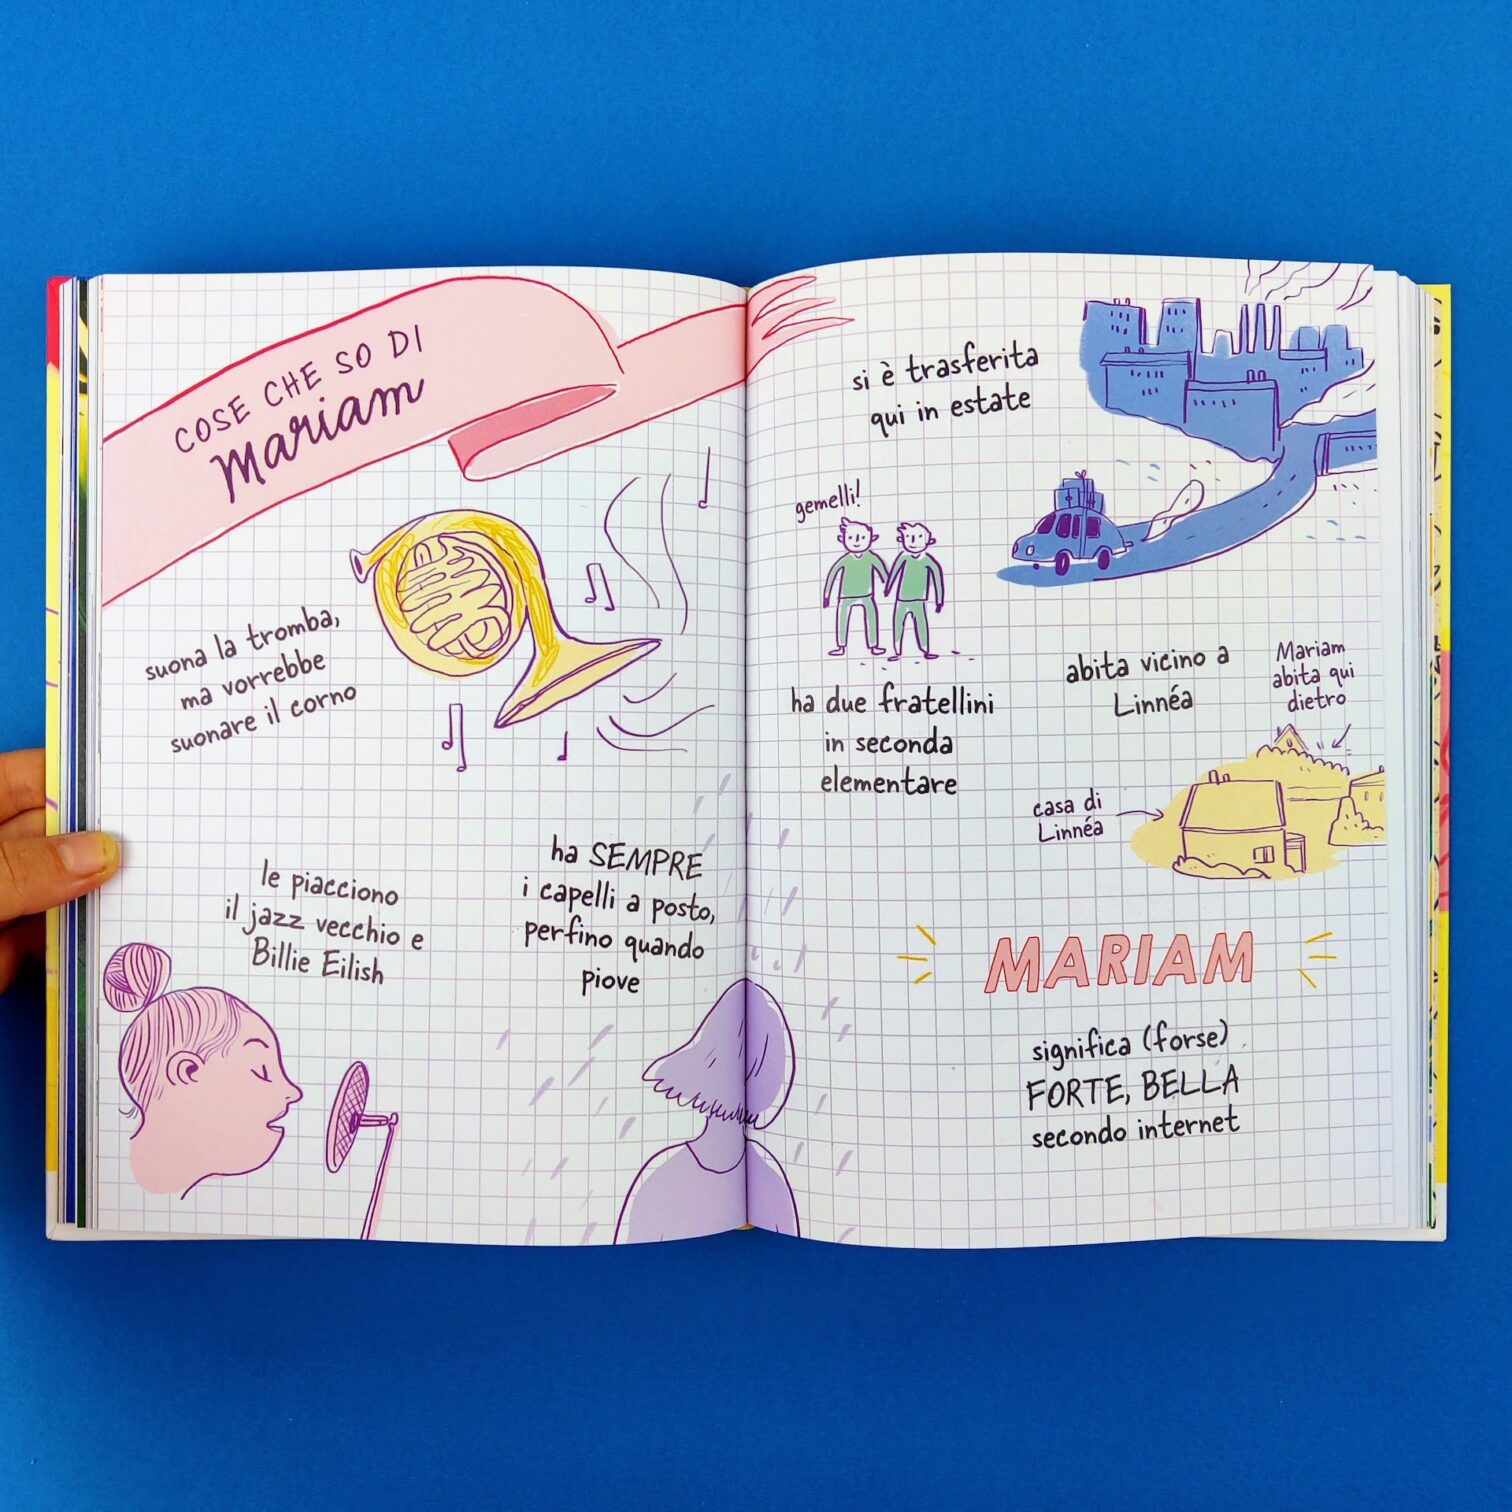 COSE CHE SO DI
Mariam
suona la tromba,
ma vorrebbe
suonare il corno
le piacciono
il jazz vecchio e
Billie Eilish
ha SEMPRE
i capelli a posto,
perfino quando
piove
si è trasferita
qui in estate
gemelli!
ha due fratellini
in seconda
elementare
abita vicino a
Linnéa
Mariam
abita qui
dietro
casa di
Linnéa
MARIAM
significa (forse)
FORTE, BELLA
secondo internet